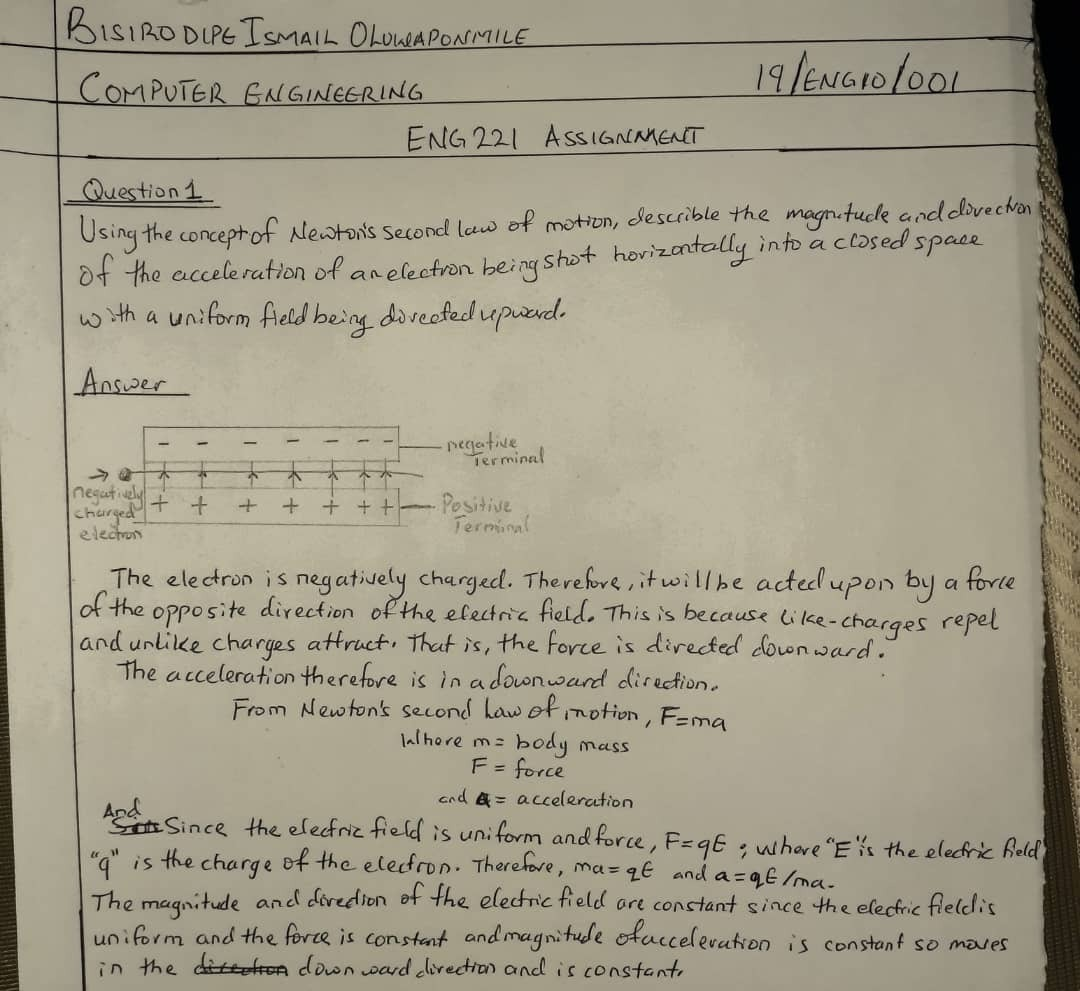 BISIRODIPE ISMAIL OLUWAPONMILE
COMPUTER ENGINEERING 19/ENG10/001
ENG 221 ASSIGNMENT
Question 1
Using the concept of Newton's second law of motion, describle the magnitude and direction
of the acceleration of an electron being shot horizontally into a closed space
with a uniform field being directed upward.
Answer
- - - - - - -
negative
Terminal
negatively
charged
electron
+ + + + + + +
Positive
Terminal
The electron is negatively charged. Therefore, it will be acted upon by a force
of the opposite direction of the electric field. This is because like-charges repel
and unlike charges attract. That is, the force is directed downward.
The acceleration therefore is in a downward direction.
From Newton's second Law of motion, F=ma
Where m = body mass
F = force
and a = acceleration
And
Since the electric field is uniform and force, F=qE ; where "E" is the electric field
"q" is the charge of the electron. Therefore, ma = qE and a=qE/ma.
The magnitude and direction of the electric field are constant since the electric field is
uniform and the force is constant and magnitude of acceleration is constant so moves
in the direction downward direction and is constant.